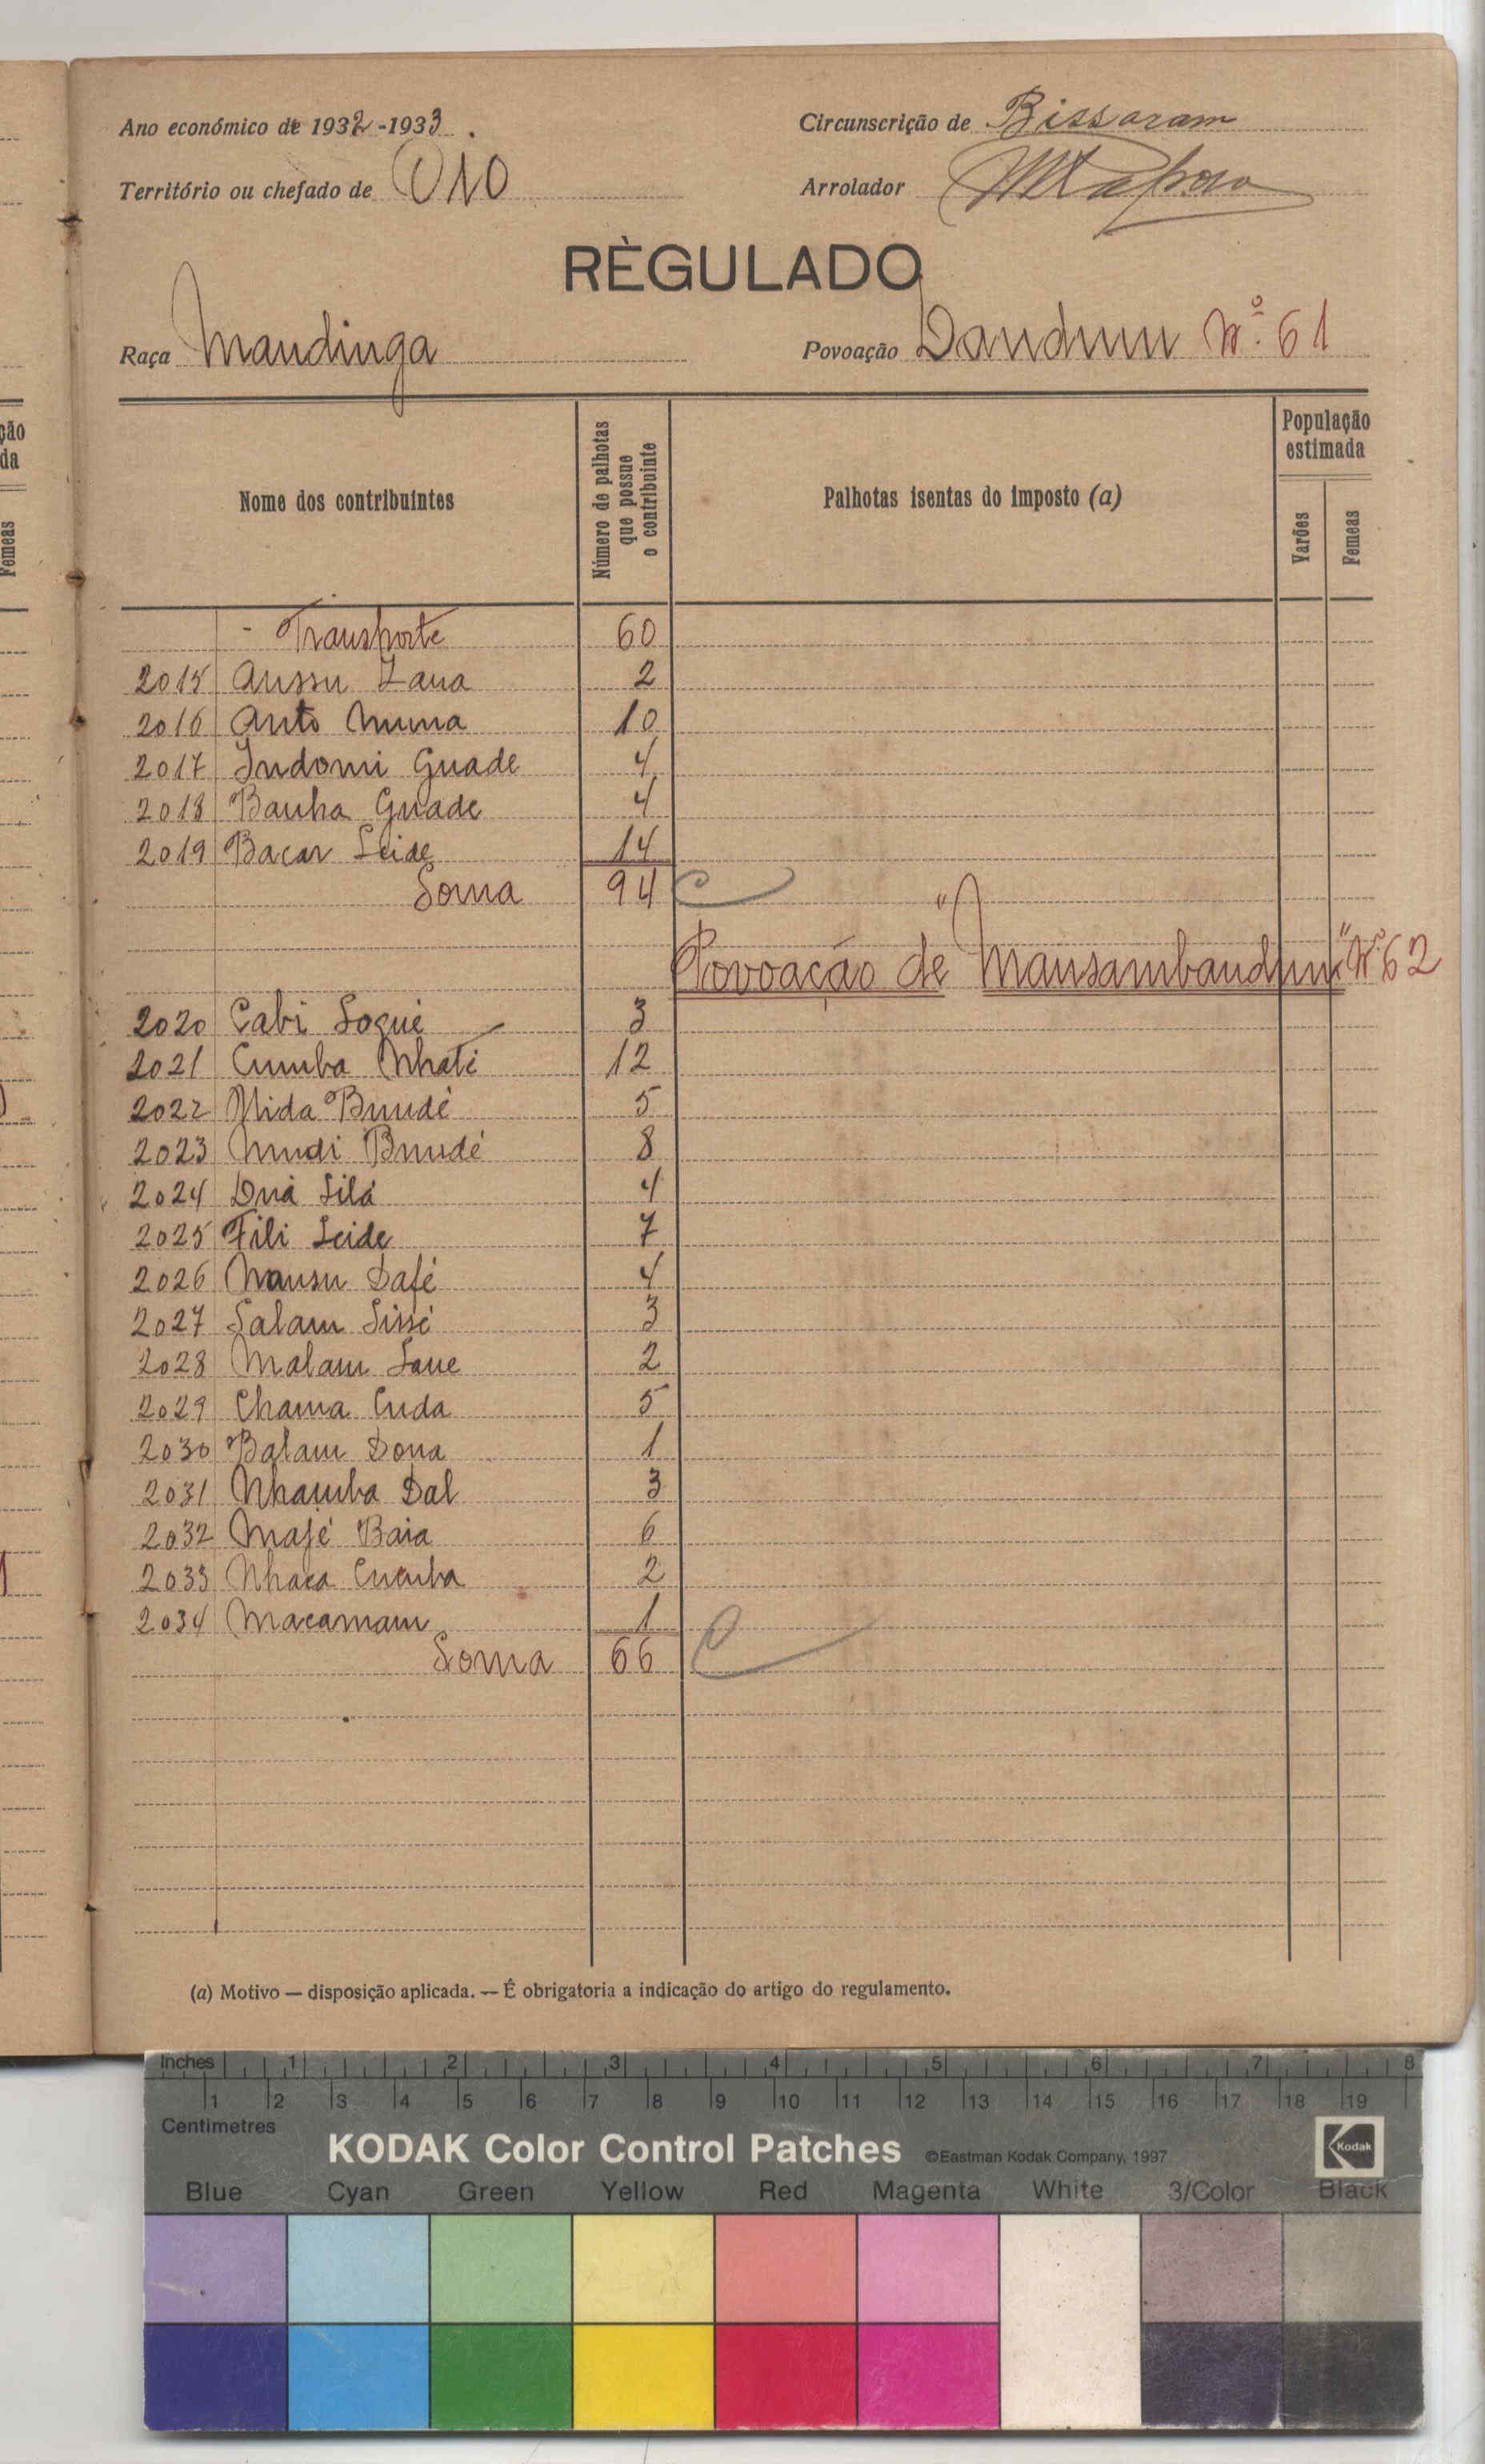 Ano económico de 1932-1933.
Circunscrição de Bissoram
Território ou chefado de OIO
Arrolador
RÈGULADO
Raça Mandinga
Povoação Dandum Nº 61
Nome dos contribuintes
Número de palhotas que possue o contribuinte
Palhotas isentas do imposto (a)
População estimada
Varões
Femeas
Transporte 60
2015 Aussu Zana 2
2016 Anto Numa 10
2017 Indomi Guade 4
2018 Banha Guade 4
2019 Bacar Seide 14
Soma 94
Povoação de "Mansambandum" Nº 62
2020 Cabi Soqué 3
2021 Cumba Nhati 12
2022 Mida Bundé 5
2023 Mudi Bundé 8
2024 Duá Silá 4
2025 Fili Seide 7
2026 Mansu Dafé 4
2027 Salam Sissé 3
2028 Malam Sane 2
2029 Chama Cuda 5
2030 Balam Dona 1
2031 Nhamba Dal 3
2032 Majé Baia 6
2033 Nhaca Cumba 2
2034 Macamam 1
Soma 66
(a) Motivo — disposição aplicada. — É obrigatoria a indicação do artigo do regulamento.
ção
da
Femeas
Inches 1 2 3 4 5 6 7 8
1 2 3 4 5 6 7 8 9 10 11 12 13 14 15 16 17 18 19
Centimetres
KODAK Color Control Patches ©Eastman Kodak Company, 1997 Kodak
Blue Cyan Green Yellow Red Magenta White 3/Color Black